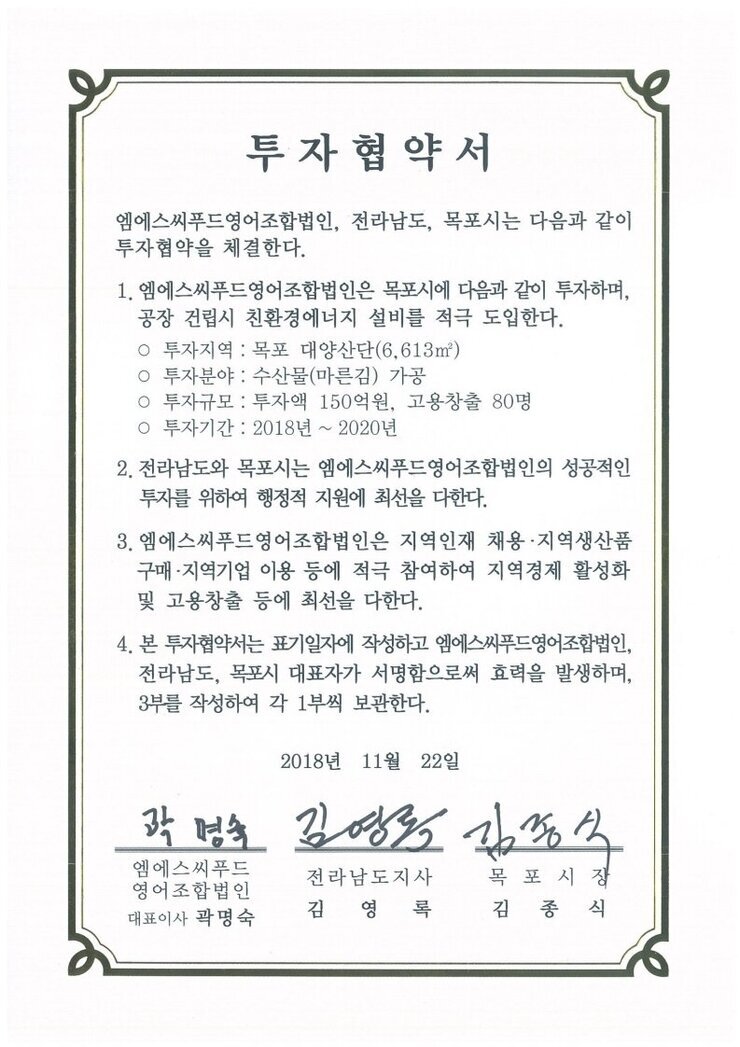 투자협약서
엠에스씨푸드영어조합법인, 전라남도, 목포시는 다음과 같이
투자협약을 체결한다.
1. 엠에스씨푸드영어조합법인은 목포시에 다음과 같이 투자하며,
공장 건립시 친환경에너지 설비를 적극 도입한다.
○ 투자지역 : 목포 대양산단(6,613㎡)
○ 투자분야 : 수산물(마른김) 가공
○ 투자규모 : 투자액 150억원, 고용창출 80명
○ 투자기간 : 2018년 ~ 2020년
2. 전라남도와 목포시는 엠에스씨푸드영어조합법인의 성공적인
투자를 위하여 행정적 지원에 최선을 다한다.
3. 엠에스씨푸드영어조합법인은 지역인재 채용·지역생산품
구매·지역기업 이용 등에 적극 참여하여 지역경제 활성화
및 고용창출 등에 최선을 다한다.
4. 본 투자협약서는 표기일자에 작성하고 엠에스씨푸드영어조합법인,
전라남도, 목포시 대표자가 서명함으로써 효력을 발생하며,
3부를 작성하여 각 1부씩 보관한다.
2018년 11월 22일
곽명숙 김영록 김종식
엠에스씨푸드
영어조합법인
대표이사 곽명숙
전라남도지사
김영록
목포시장
김종식